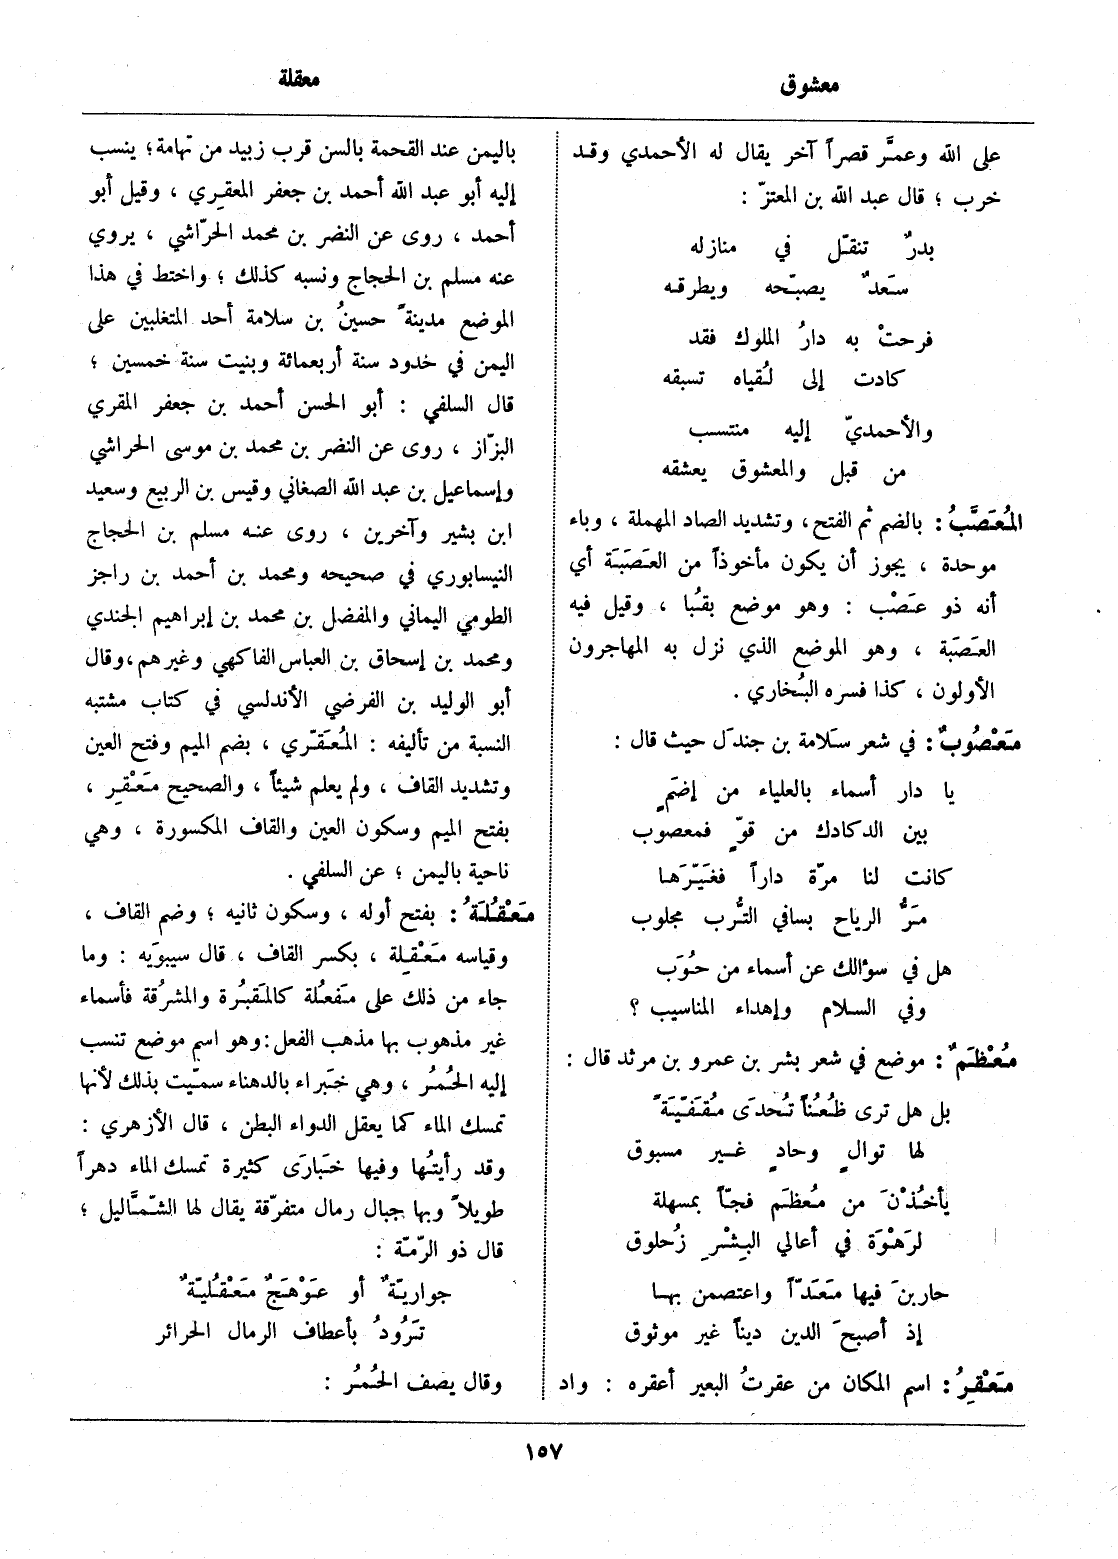 معشوق
معقلة
على الله وعمَّر قصراً آخر يقال له الأحمدي وقد
خرب ؛ قال عبد الله بن المعتزّ :
بدرٌ تنقّل في منازله
سَعدٌ يصبّحه ويطرقه
فرحتْ به دارُ الملوك فقد
كادت إلى لُقياه تسبقه
والأحمديّ إليه منتسب
من قبل والمعشوق يعشقه
المُعَصَّبُ : بالضم ثم الفتح ، وتشديد الصاد المهملة ، وباء
موحدة ، يجوز أن يكون مأخوذاً من العَصَبَة أي
أنه ذو عَصْب : وهو موضع بقُبا ، وقيل فيه
العَصَبَة ، وهو الموضع الذي نزل به المهاجرون
الأولون ، كذا فسره البُخاري .
مَعْصُوبٌ : في شعر سَلامة بن جندَل حيث قال :
يا دار أسماء بالعلياء من إضَمٍ
بين الدكادك من قوٍّ فمعصوب
كانت لنا مرّة داراً فغَيّرَها
مَرُّ الرياح بسافي التُّرب مجلوب
هل في سؤالك عن أسماء من حُوَب
وفي السلام وإهداء المناسيب ؟
مُعْظَمٌ : موضع في شعر بشر بن عمرو بن مرثد قال :
بل هل ترى ظُعُناً تُحدَى مُقَفّيَةً
لها توالٍ وحادٍ غير مسبوق
يأخُذْنَ من مُعظَم فجّاً بمسهلة
لرَهْوَة في أعالي البِشْرِ زُحلوق
حاربنَ فيها مَعَدّاً واعتصمن بها
إذ أصبحَ الدين ديناً غير موثوق
مَعْقِرُ : اسم المكان من عقرتُ البعير أعقره : واد
باليمن عند القحمة بالسن قرب زبيد من تهامة ؛ ينسب
إليه أبو عبد الله أحمد بن جعفر المعقري ، وقيل أبو
أحمد ، روى عن النضر بن محمد الحرّاشي ، يروي
عنه مسلم بن الحجاج ونسبه كذلك ؛ واختط في هذا
الموضع مدينةً حسينُ بن سلامة أحد المتغلبين على
اليمن في خدود سنة أربعمائة وبنيت سنة خمسين ؛
قال السلفي : أبو الحسن أحمد بن جعفر المقري
البزّاز ، روى عن النضر بن محمد بن موسى الحراشي
وإسماعيل بن عبد الله الصغاني وقيس بن الربيع وسعيد
ابن بشير وآخرين ، روى عنه مسلم بن الحجاج
النيسابوري في صحيحه ومحمد بن أحمد بن راجز
الطومي اليماني والمفضل بن محمد بن إبراهيم الجندي
ومحمد بن إسحاق بن العباس الفاكهي وغيرهم ، وقال
أبو الوليد بن الفرضي الأندلسي في كتاب مشتبه
النسبة من تأليفه : المُعَقّري ، بضم الميم وفتح العين
وتشديد القاف ، ولم يعلم شيئاً ، والصحيح مَعْقِر ،
بفتح الميم وسكون العين والقاف المكسورة ، وهي
ناحية باليمن ؛ عن السلفي .
مَعْقُلَةُ : بفتح أوله ، وسكون ثانيه ؛ وضم القاف ،
وقياسه مَعْقِلة ، بكسر القاف ، قال سيبوَيه : وما
جاء من ذلك على مَفعُلة كالمَقبُرة والمشرُقة فأسماء
غير مذهوب بها مذهب الفعل : وهو اسم موضع تنسب
إليه الحُمُر ، وهي خَبراء بالدهناء سمّيت بذلك لأنها
تمسك الماء كما يعقل الدواء البطن ، قال الأزهري :
وقد رأيتُها وفيها خَبارَى كثيرة تمسك الماء دهراً
طويلاً وبها جبال رمال متفرّقة يقال لها الشّمّاليل ؛
قال ذو الرّمّة :
جواريّةٌ أو عَوْهَجٌ مَعْقُليّةٌ
تَرُودُ بأعطاف الرمال الحرائر
وقال يصف الحُمُر :
١٥٧